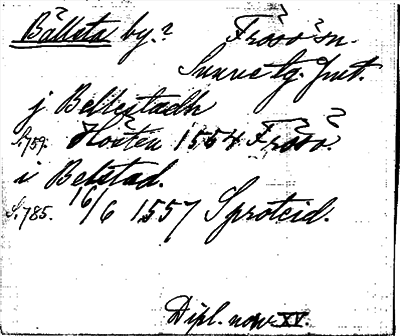 Bällsta by.? Frösö sn.
Sunne tg. Jmt.
j Bellestadh
S.759. Hösten 1554 Frösö.
i Belstad.
S.785. 16/6 1557 Sproteid.
Dipl. norv. XV.